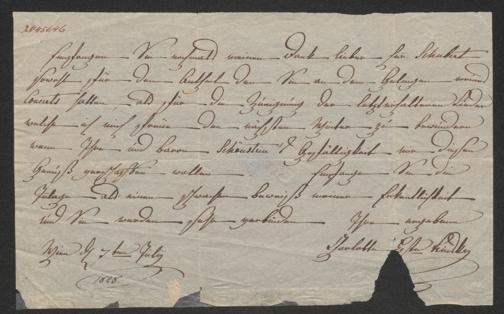 2045646
Empfangen Sie nochmals meinen Dank lieber Hr Schubert
sowohl für den Antheil den Sie an dem Gelingen meines
Concerts hatten, als für die Zueignung der Lieder
welche ich mich freue den nächsten Winter zu bewundern
wenn Ihre und baron Schönstein's Gefälligkeit mir diesen
Genuß verschaffen wollen. Empfangen Sie die
als einen schwachen beweiß meiner Erkenntlichkeit
und Sie werden sehr verbinden Ihre ergebene
Wien d 7ten July Charlotte
1828